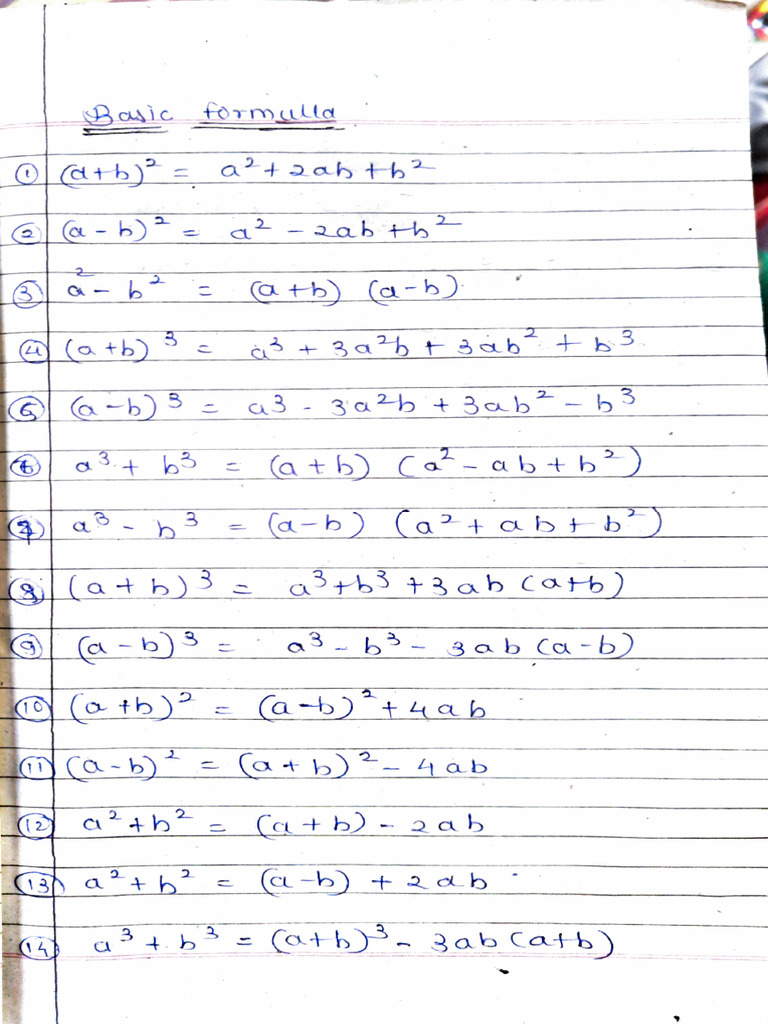 Basic formulla
① (a+b)² = a² + 2ab + b²
② (a-b)² = a² - 2ab + b²
③ a² - b² = (a+b) (a-b)
④ (a+b)³ = a³ + 3a²b + 3ab² + b³
⑤ (a-b)³ = a³ - 3a²b + 3ab² - b³
⑥ a³ + b³ = (a+b) (a² - ab + b²)
⑦ a³ - b³ = (a-b) (a² + ab + b²)
⑧ (a+b)³ = a³ + b³ + 3ab (a+b)
⑨ (a-b)³ = a³ - b³ - 3ab (a-b)
⑩ (a+b)² = (a-b)² + 4ab
⑪ (a-b)² = (a+b)² - 4ab
⑫ a² + b² = (a+b) - 2ab
⑬ a² + b² = (a-b) + 2ab
⑭ a³ + b³ = (a+b)³ - 3ab (a+b)